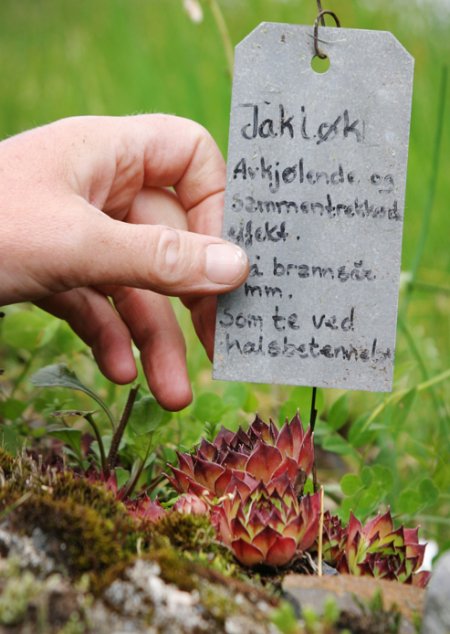 Jåkløk
Avkjølende og
sammentrekkend
effekt.
å brannsår
mm.
Som te ved
halsbetennelse